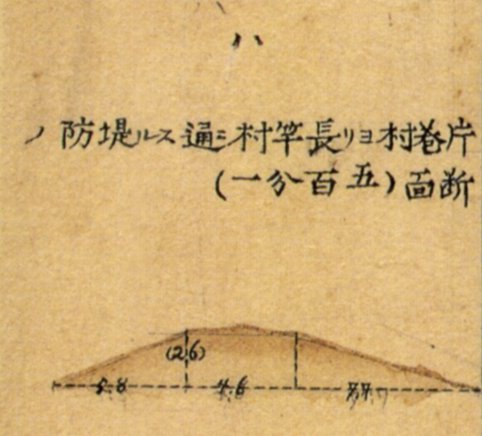 ハ
片巻村ヨリ長竿村ニ通スル堤防ノ
断面(五百分一)
(2.6)
4.6